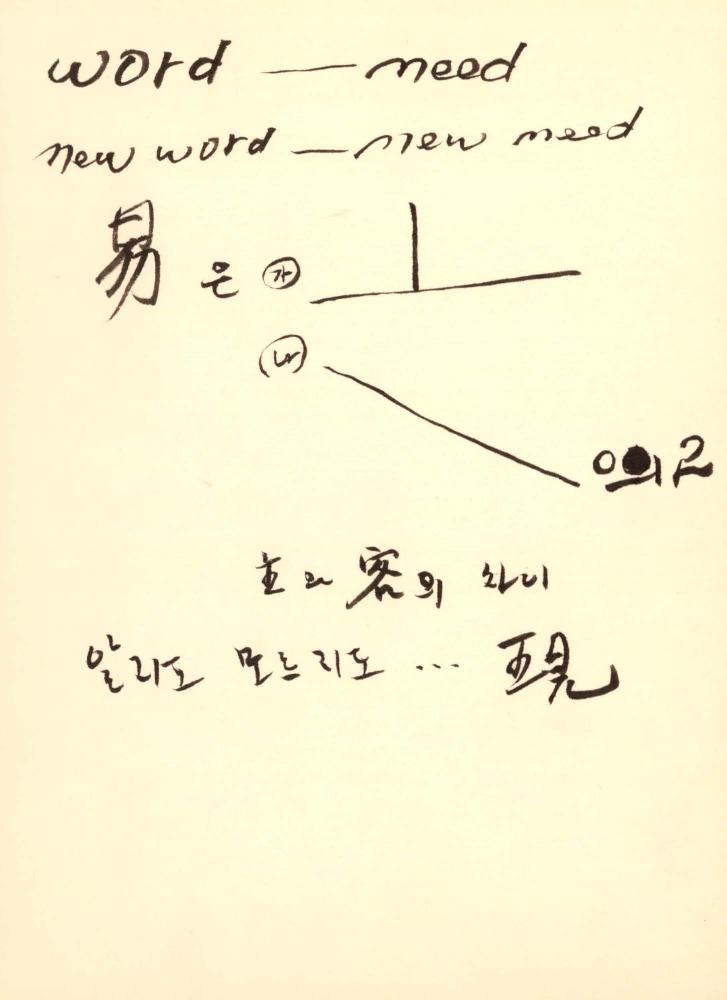 word — need
new word — new need
易 은 ㉮
㉯
의 2
主와 客의 차이
알리도 모르리도 … 玉見